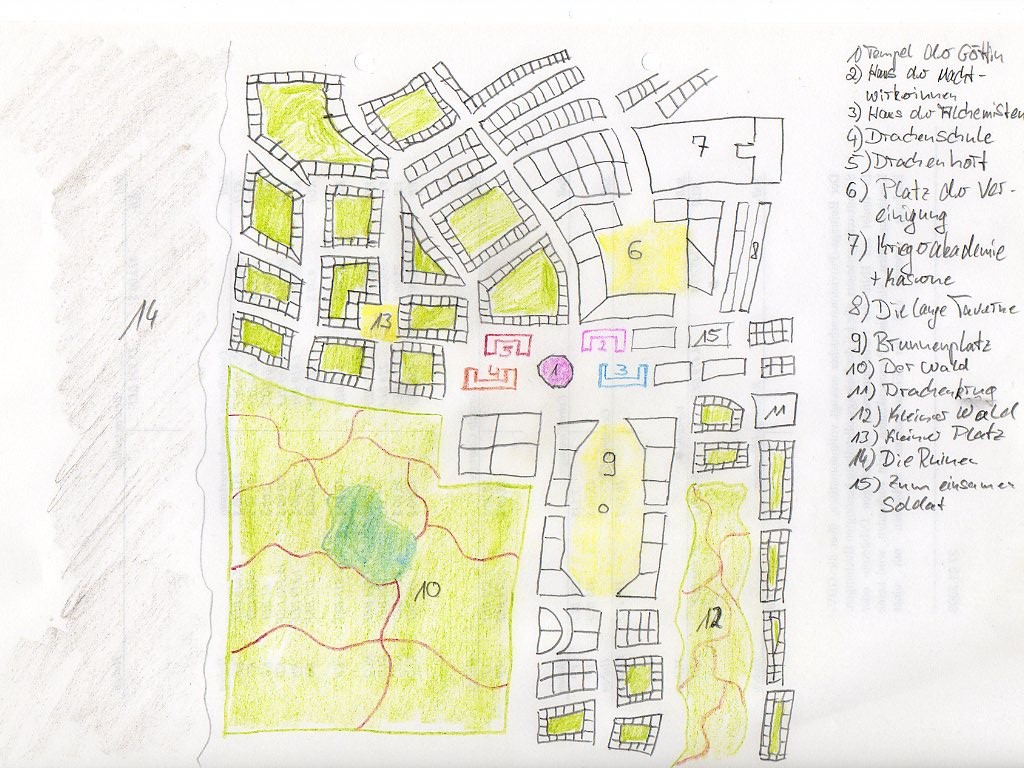 1) Tempel der Göttin
2) Haus der Nacht-
wirkerinnen
3) Haus der Alchemisten
4) Drachenschule
5) Drachenhort
6) Platz der Ver-
einigung
7) Kriegsakademie
+ Kaserne
8) Die lange Taverne
9) Brunnenplatz
10) Der Wald
11) Drachenkrug
12) Kleiner Wald
13) Kleiner Platz
14) Die Ruinen
15) Zum einsamen
Soldat
7
6
8
14
13
5
2
15
4
1
3
11
9
10
12